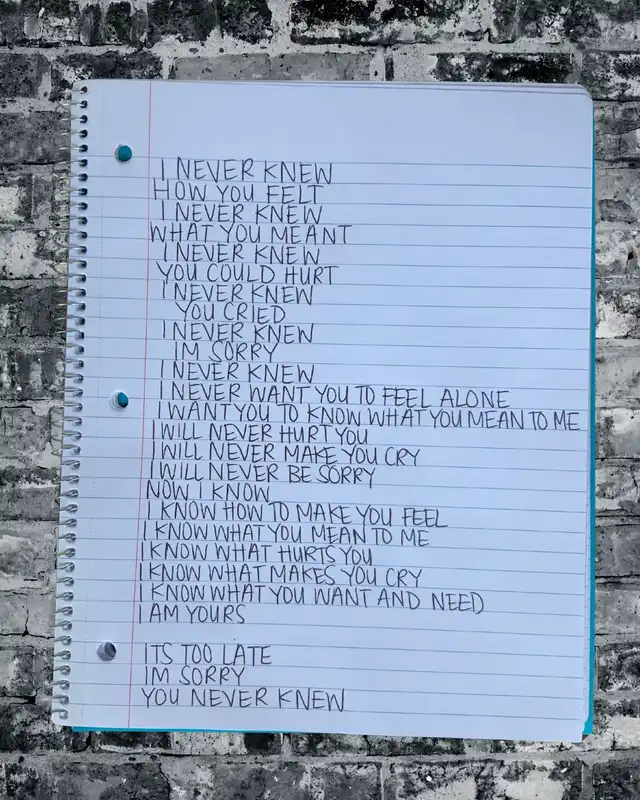 I NEVER KNEW
HOW YOU FELT
I NEVER KNEW
WHAT YOU MEANT
I NEVER KNEW
YOU COULD HURT
I NEVER KNEW
YOU CRIED
I NEVER KNEW
IM SORRY
I NEVER KNEW
I NEVER WANT YOU TO FEEL ALONE
I WANT YOU TO KNOW WHAT YOU MEAN TO ME
I WILL NEVER HURT YOU
I WILL NEVER MAKE YOU CRY
I WILL NEVER BE SORRY
NOW I KNOW
I KNOW HOW TO MAKE YOU FEEL
I KNOW WHAT YOU MEAN TO ME
I KNOW WHAT HURTS YOU
I KNOW WHAT MAKES YOU CRY
I KNOW WHAT YOU WANT AND NEED
I AM YOURS
ITS TOO LATE
IM SORRY
YOU NEVER KNEW